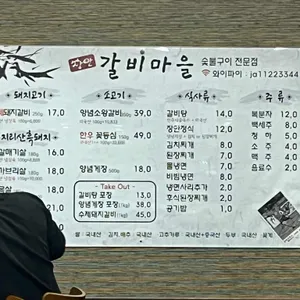 장안 갈비마을
숯불구이 전문점
와이파이 : ja11223344
돼지고기
돼지갈비 250g 17,0
지리산흑돼지
갈매기살 180g 16,0
가브리살 180g 18,0
18,0
18,0
소고기
양념소왕갈비 39,0
한우 꽃등심 49,0
양념게장 500g 18,0
- Take Out -
갈비탕 포장 13,0
양념게장 포장(1kg) 38,0
수제돼지갈비(1kg) 45,0
식사류
갈비탕 14,0
장안정식 12,0
김치찌개 8,0
된장찌개 8,0
물냉면 7,0
비빔냉면 8,0
냉면사리추가 2,0
후식된장찌개 2,0
공기밥 1,0
주류
복분자 12,0
백세주 8,0
청하 5,0
소주 4,0
맥주 4,0
음료 2,0
쌀 : 국내산 김치,배추 : 국내산 고춧가루 : 국내산+중국산 두부 : 국내산